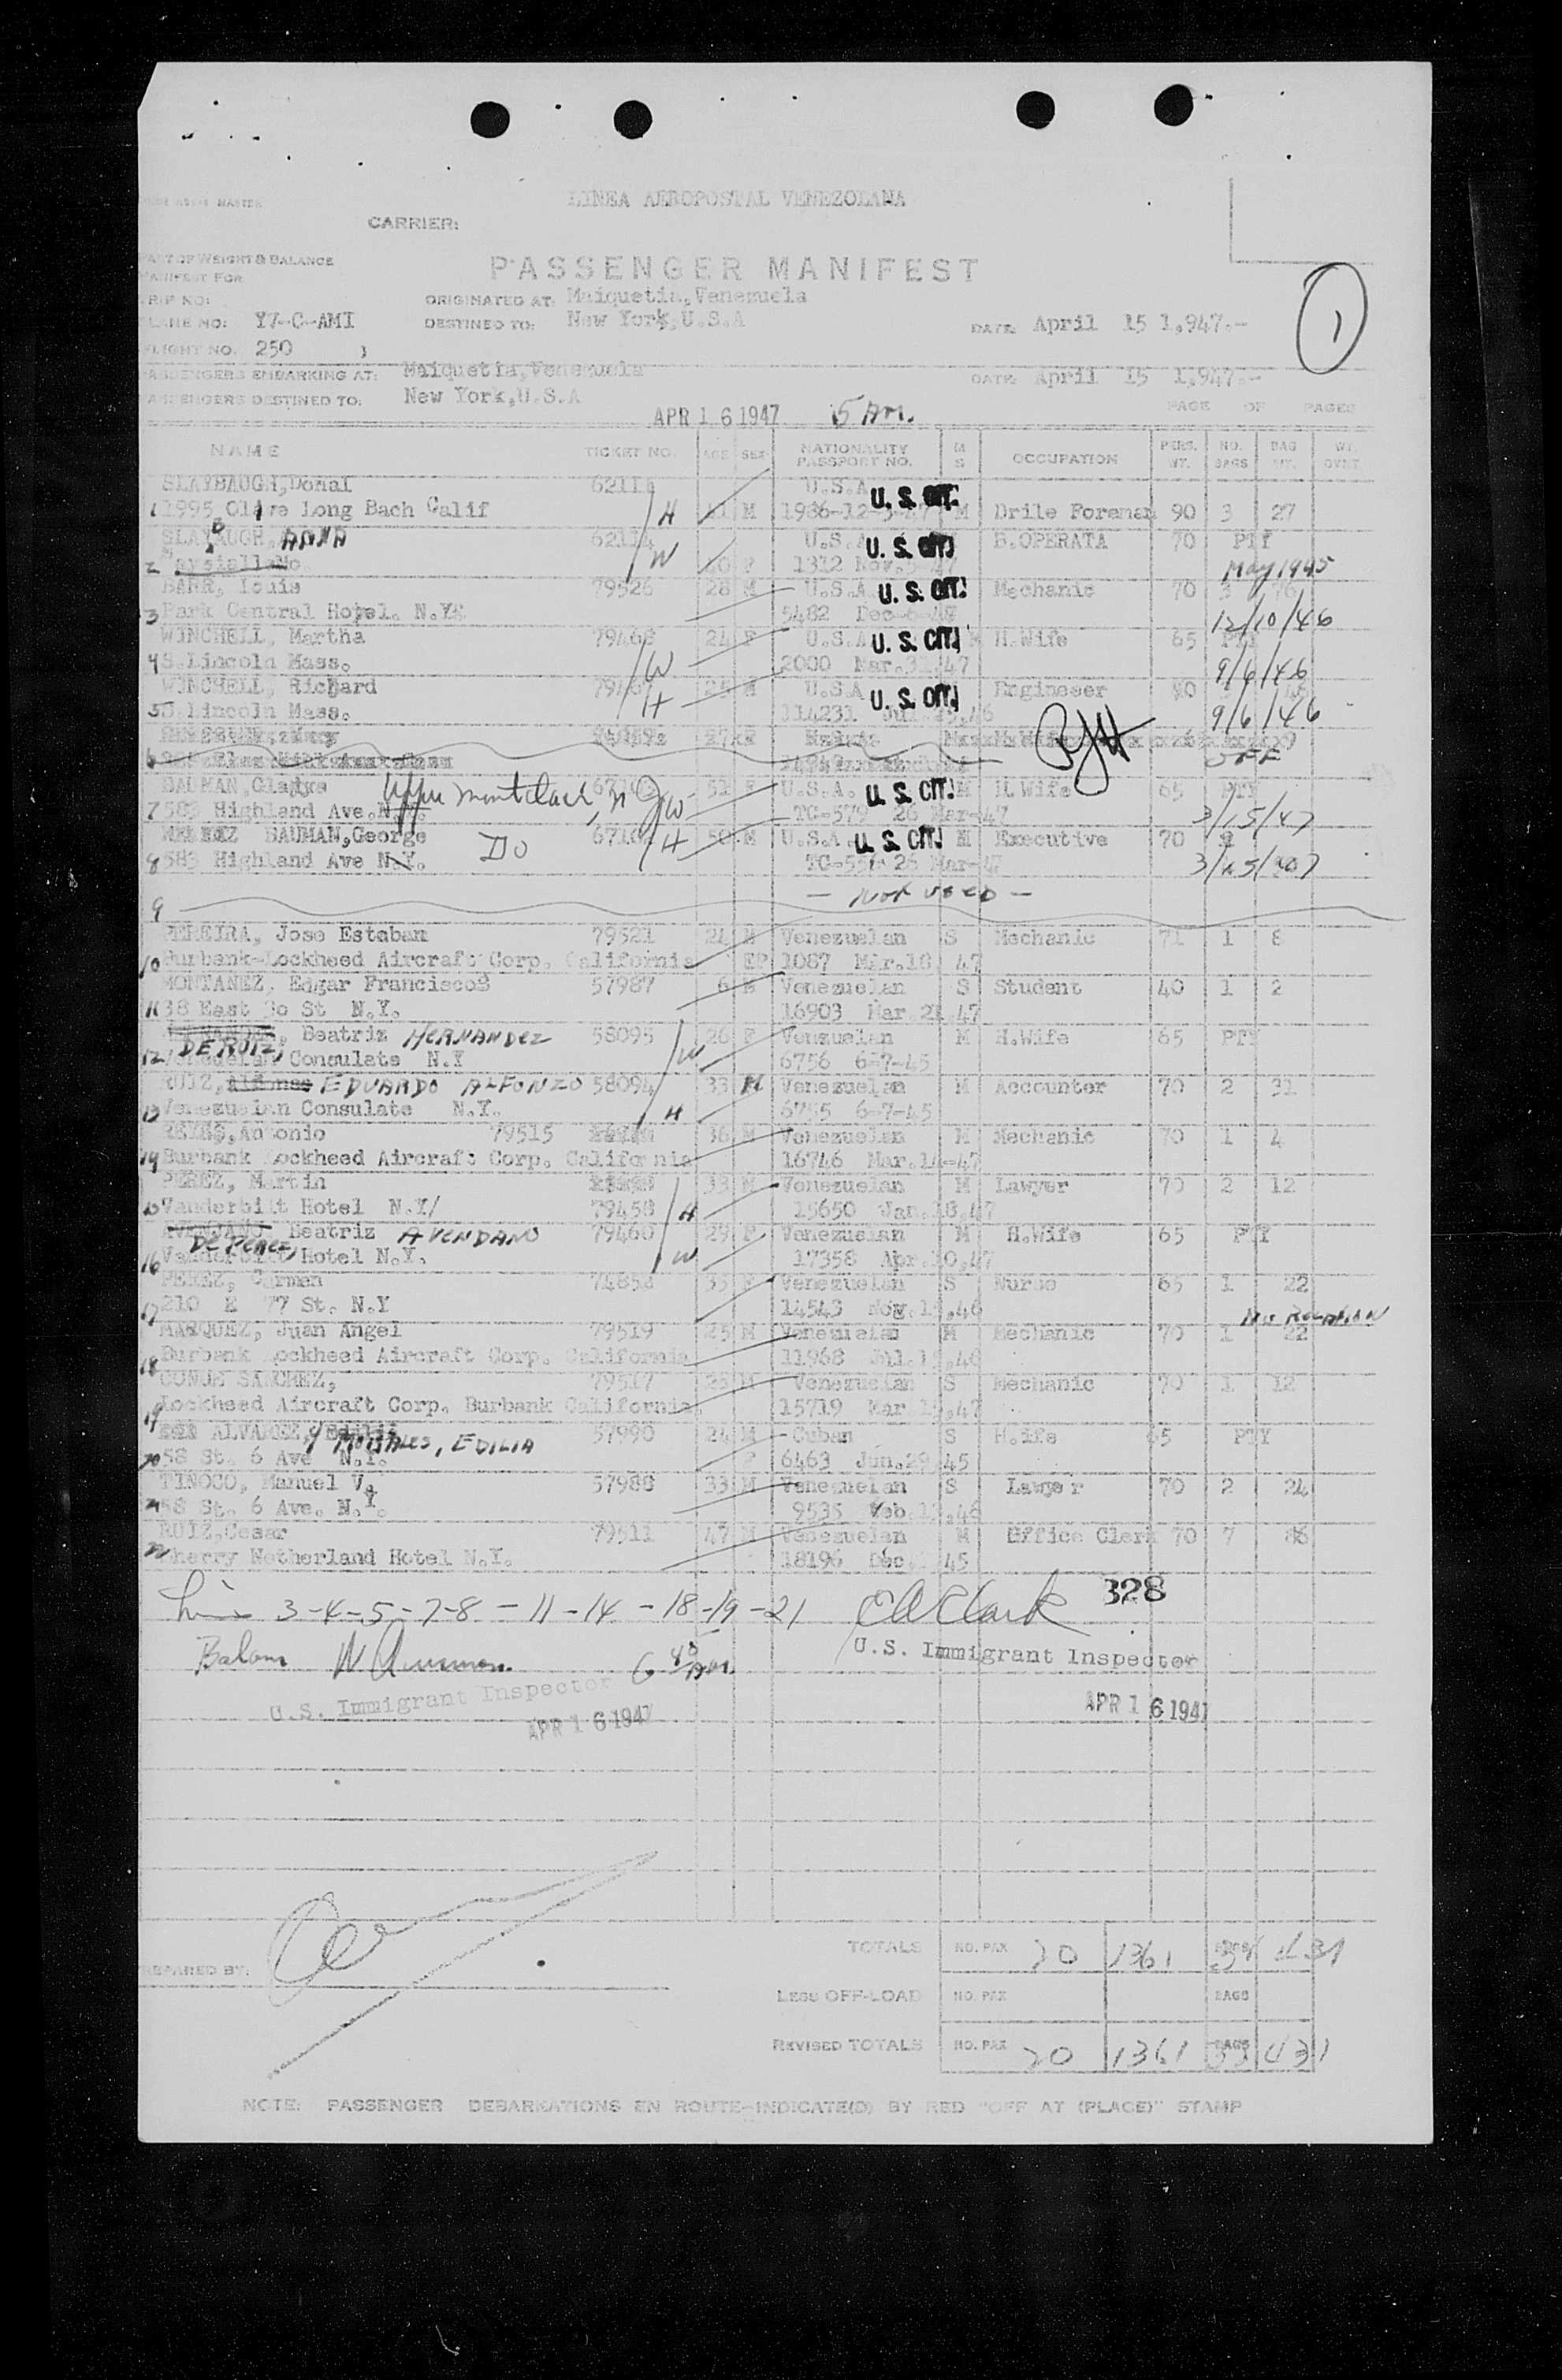 LINEA AEROPOSTAL VENEZOLANA
CARRIER:
PART OF WEIGHT & BALANCE
MANIFEST FOR
PASSENGER MANIFEST
TRIP NO:
ORIGINATED AT: Maiquetia, Venezuela
PLANE NO: YV-C-AMI
DESTINED TO: New York, U.S.A
DATE: April 15 1,947.-
1
FLIGHT NO. 250
PASSENGERS EMBARKING AT: Maiquetia, Venezuela
DATE: April 15 1,947.-
PASSENGERS DESTINED TO: New York, U.S.A
PAGE OF PAGES
APR 16 1947 5 AM.
NAME TICKET NO. AGE SEX NATIONALITY PASSPORT NO. M S OCCUPATION PERS. WT. NO. BAGS BAG WT. WT. OVNT
SLAYBAUGH, Donal U.S.A U. S. CIT.
1 1995 Long Bach Calif H M M Drile Foreman 90 3 27
62114 U.S.A U. S. CIT. B.OPERATA 70 PTY
2 W F 1312 Nov. May 1945
BARR, Louis 79526 28 M U.S.A U. S. CIT. Mechanic 70 3
3 Park Central Hotel. N.Y. 5482 12/10/46
WINCHELL, Martha 24 F U.S.A U. S. CIT. H.Wife 65 PTY
4 S.Lincoln Mass. W 2000 Mar.31.47 9/6/46
WINCHELL, Richard M U.S.A U. S. CIT. Engineeer
5 S.Lincoln Mass. H 114231 9/6/46
6 OFF
BAUMAN, Gladys Upper Montclair, N J 52 F U.S.A. U. S. CIT. M H.Wife 65 PTY
7 583 Highland Ave. W TC-579 26 Mar-47 3/15/47
BAUMAN, George Do 50 M U.S.A. U. S. CIT. M Executive 70
8 583 Highland Ave N.Y. H 26 Mar-47
— Not used —
9
PEREIRA, Jose Esteban 79521 24 M Venezuelan S Mechanic 71 1 8
10 Burbank-Lockheed Aircraft Corp. California 1087 Mar.18 47
MONTANEZ, Edgar Francisco 57987 6 M Venezuelan S Student 40 1 2
11 38 East 30 St N.Y. 16903 Mar. 21 47
Beatriz HERNANDEZ 58095 26 F Venezuelan M H.Wife 65 PTY
12 DE RUIZ, Consulate N.Y W 6756 6-7-45
RUIZ, EDUARDO ALFONZO 58094 33 M Venezuelan M Accounter 70 2 31
13 Venezuelan Consulate N.Y. H 6755 6-7-45
REYES, Antonio 79515 36 M Venezuelan M Mechanic 70 1 4
14 Burbank Lockheed Aircraft Corp. California 16746 Mar.14-47
PEREZ, Martin 33 M Venezuelan M Lawyer 70 2 12
15 Vanderbilt Hotel N.Y/ 79458 H 15650 Jan.18,47
Beatriz AVENDANO 79460 29 F Venezuelan M H.Wife 65 PTY
16 DE PEREZ, Vanderbilt Hotel N.Y. W 17358 Apr.10,47
PEREZ, Carmen 35 F Venezuelan S Nurse 65 1 22
17 210 E 77 St. N.Y 14543 Nov.
MARQUEZ, Juan Angel 79519 25 M Venezuelan M Mechanic 70 1 22
18 Burbank Lockheed Aircraft Corp. California 11968
SANCHEZ, 79517 M Venezuelan S Mechanic 70 1 12
19 Lockheed Aircraft Corp. Burbank California 15719 Mar
ALVAREZ, y MORALES, EDILIA 57990 24 Cuban S H.ife 65 PTY
20 58 St. 6 Ave N.Y. F 6463 Jun.29 45
TINOCO, Manuel V. 57988 33 M Venezuelan S Lawyer 70 2 24
21 58 St. 6 Ave. N.Y. 9535 Feb.
RUIZ, Cesar 79511 47 M Venezuelan M Office Clerk 70 7
22 Sherry Netherland Hotel N.Y. 18196 Dec. 45
3-4-5-7-8-11-14-18-19-21 Clark 328
6 40 AM. U.S. Immigrant Inspector
U.S. Immigrant Inspector
APR 16 1947 APR 16 1947
TOTALS NO. PAX 20 1361
PREPARED BY:
LESS OFF-LOAD NO. PAX BAGS
REVISED TOTALS NO. PAX 20 1361 BAGS 431
NOTE: PASSENGER DEBARKATIONS EN ROUTE-INDICATE(D) BY RED "OFF AT (PLACE)" STAMP